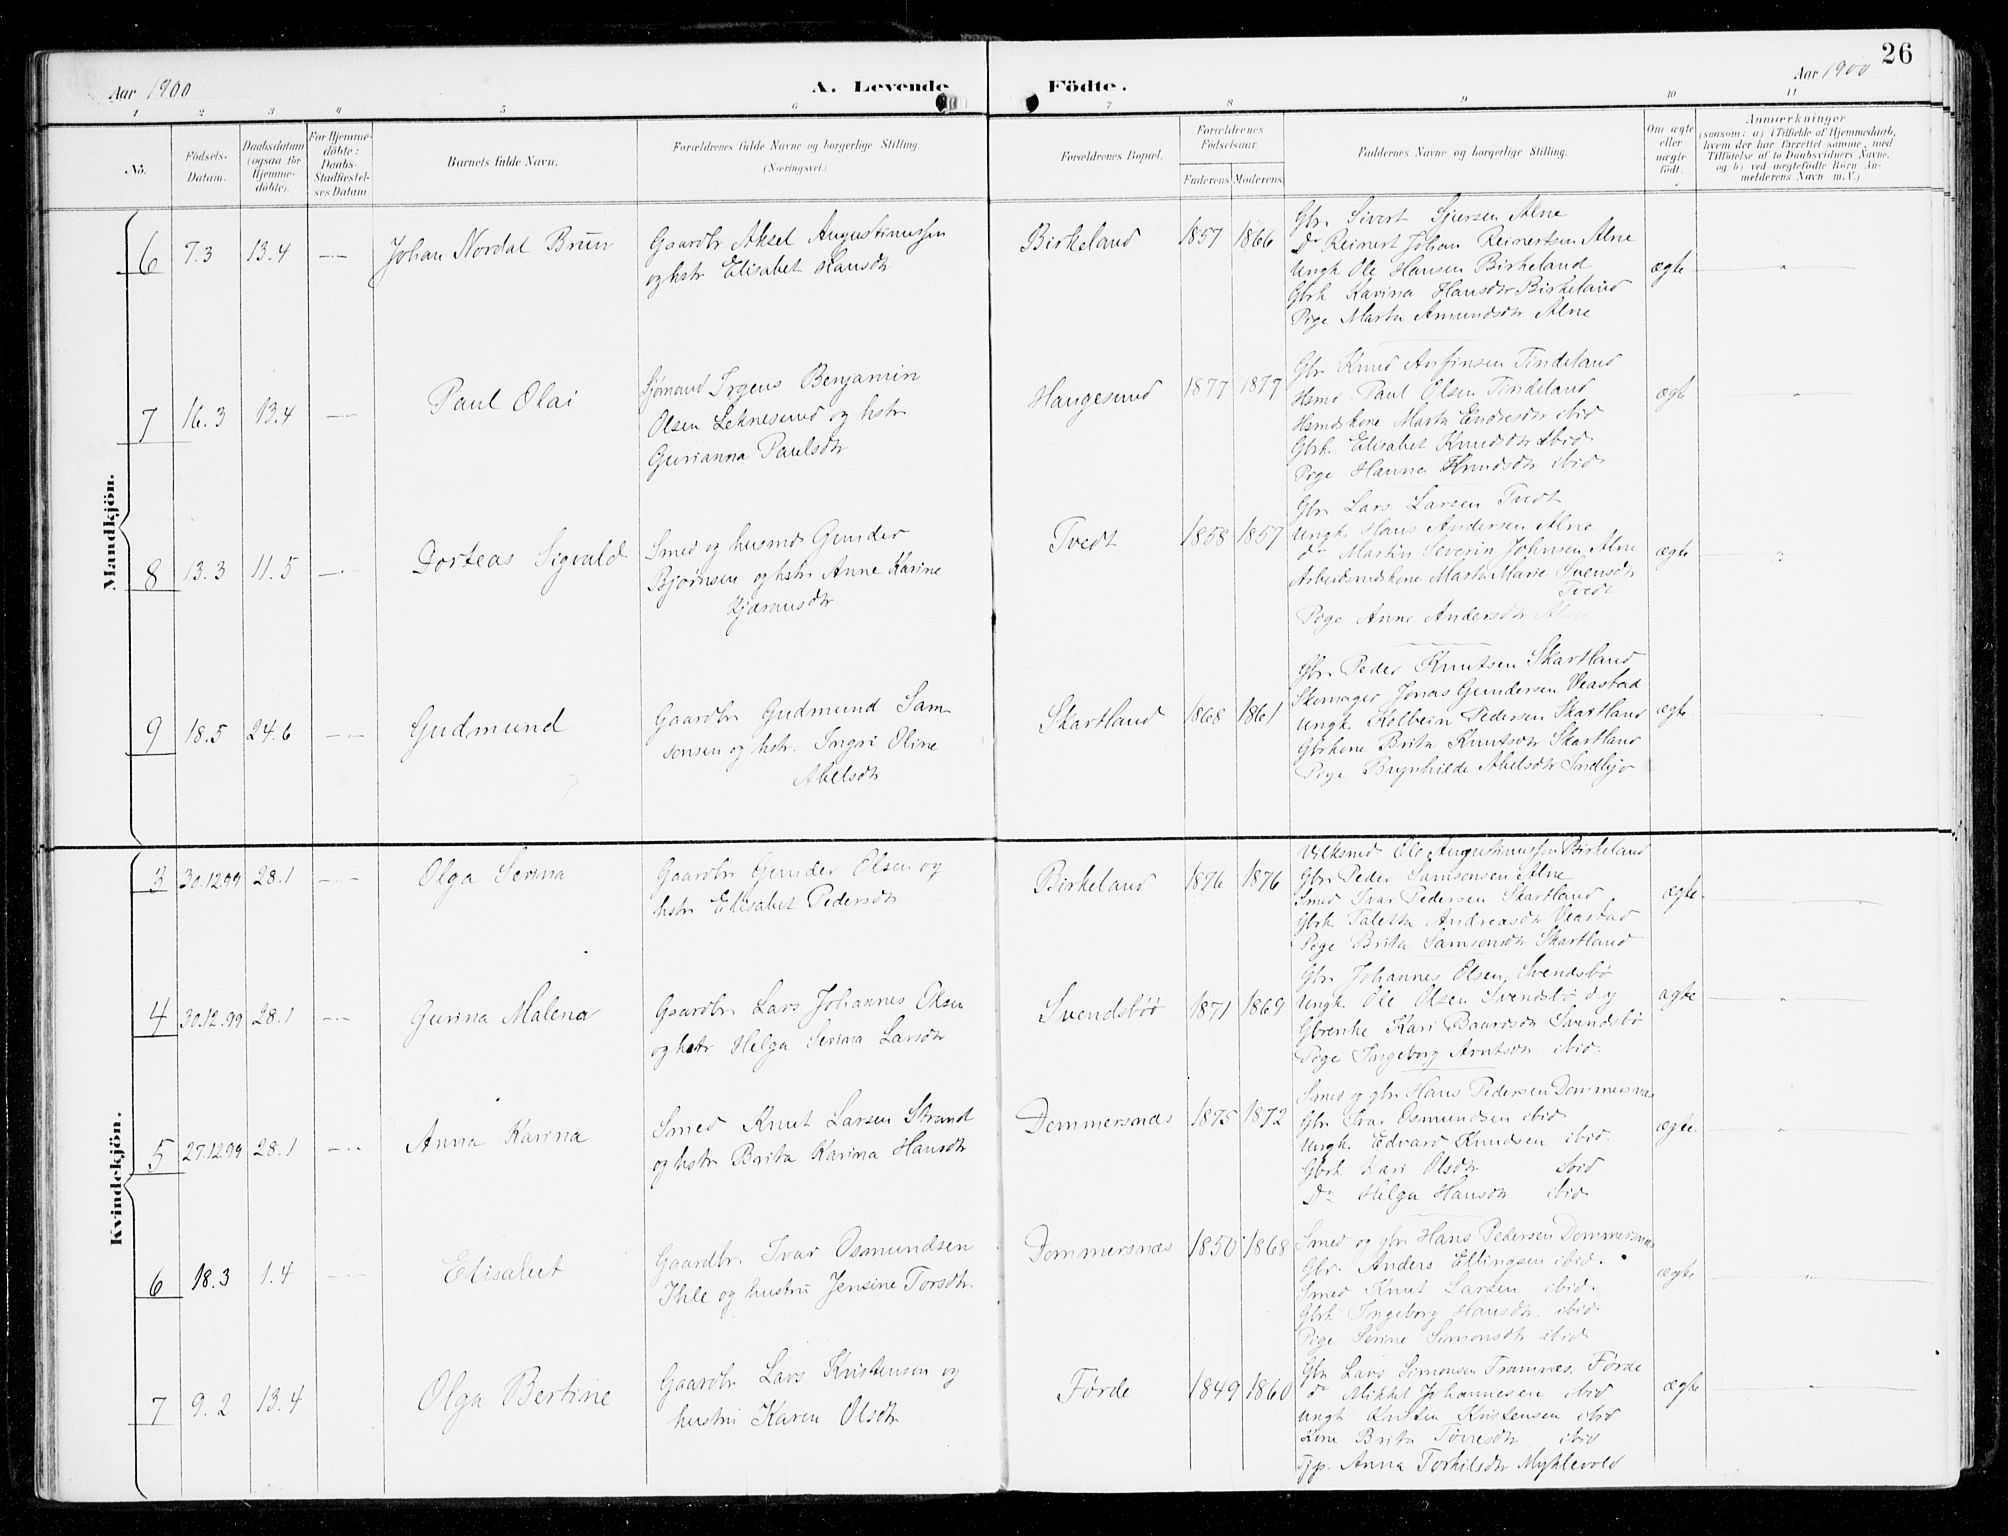 Aar 1900
A. Levende
Födte.
Aar 1900
26
1 2 3 4 5 6 7 8 9 10 11
No.
Födsels-Datum.
Daabsdatum (ogsaa for Hjemme-döbte).
For Hjemme-döbte: Daabs-Stadfæstel-ses Datum.
Barnets fulde Navn.
Forældrenes fulde Navne og borgerlige Stilling. (Næringsvei.)
Forældrenes Bopæl.
Forældrenes Födselsaar.
Faderens Moderens
Faddernes Navne og borgerlige Stilling.
Om ægte eller uægte födt.
Anmærkninger
(saasom: a) i Tilfælde af Hjemmedaab, hvem der har forrettet samme, med Tilföielse af to Daabsvidners Navne, og b) ved uægtefödte Börn Anmelderens Navn m. V.)
Mandkjön.
6 7.3 13.4 Johan Nordal Brun
Gaardbr Aksel Augustinussen
og hstr Elisabet Hansdtr
Birkeland 1857 1866
Gbr. Sivert Sjursen Alne
Do Reinert Johan Reinertsen Alne
Ungk Ole Hansen Birkeland
Gbrk Karina Hansdtr Birkeland
Pige Marta Amundsdtr Alne
ægte
7 16.3 13.4 Paul Olai
Sjømand Irgens Benjamin
Olsen Leknesund og hstr
Gurianna Paulsdtr
Haugesund 1877 1877
Gbr Knud Anfinsen Tindeland
Hsmd. Paul Olsen Tindeland
Hsmdskone Marta Endresdtr ibid
Gbrk. Elisabet Knudsdtr ibid.
Pige Hanna Knudsdtr ibid.
ægte
8 13.3 11.5 Dorteas Sigvald
Smed og husmd Gunder
Bjørnsen og hstr Anne Karine
Tvedt 1858 1857
Gbr Lars Larsen Tvedt
Ungk. Hans Andersen Alne
do Martin Severin Johnsen Alne
Arbeidsmdskone Marta Marie Svensdtr
Tvedt
Pige Anne Andersdtr Alne
ægte
9 18.5 24.6 Gudmund
Gaardbr Gudmund Sam-
sonsen og hstr. Ingri Oline
Abelsdtr
Skartland 1868 1861
Gbr Peder Knutsen Skartland
Skomager Jonas Gundersen Veastad
Ungk. Kolbein Pedersen Skartland
Gbrkone Brita Knutsdtr Skartland
Pige Brynhilde Abelsdtr
ægte
Kvindekjön.
3 30.12.99 28.1 Olga Serina
Gaardbr Gunder Olsen og
hstr Elisabet Pedersdtr
Birkeland 1876 1876
Ole Augustinussen Birkeland
Gbr Peder Samsonsen Alne
Smed Ivar Pedersen Skartland
Gbrk Taletta Andreasdtr Veastad
Pige Brita Samsonsdtr Skartland
ægte.
4 30.12.99 28.1 Gurina Malena
Gaardbr Lars Johannes Olsen
og hstr Helga Serina Larsdtr
Svendsbøø 1871 1869
Gbr Johannes Olsen, Svendsbø
Ungk. Ole Olsen Svendsbø d.y.
Gbrenke Kari Baardsdtr Svendsbø
Pige Ingeborg Arntsdtr ibid.
ægte
5 27.12.99 28.1 Anna Karina
Smed Knut Larsen Strand
og hstr Brita Karina Hansdtr
Dommersnæs 1875 1872
Smed og gbr Hans Pedersen Dommersnæs
Gbr Ivar Osmundsen ibid
Ungk. Edvard Knudsen ibid.
Gbrk Kari Olsdtr ibid
Do Helga Hansdtr ibid
ægte.
6 18.3 1.4 Elisabet
Gaardbr. Ivar Osmundsen
Ihle og hustru Jensine Torsdtr.
Dommersnæs 1850 1868
Smed og gbr Hans Pedersen Dommersnæs
Gbr. Anders Ellingsen ibid.
Smed Knut Larsen ibid.
Gbrk Ingeborg Hansdtr. ibid.
Pige Serine Simonsdtr ibid
ægte
7 9.2 13.4 Olga Bertine
Gaardbr Lars Kristensen og
hustru Karen Olsdtr
Førde 1849 1860
Gbr Lars Simonsen Framnæs, Førde
do Mikkel Johannesen ibid
Ungk Kristen Kristensen ibid
Kone Brita Tørresdtr ibid
Tjp. Anna Torkilsdtr Myklevold
ægte